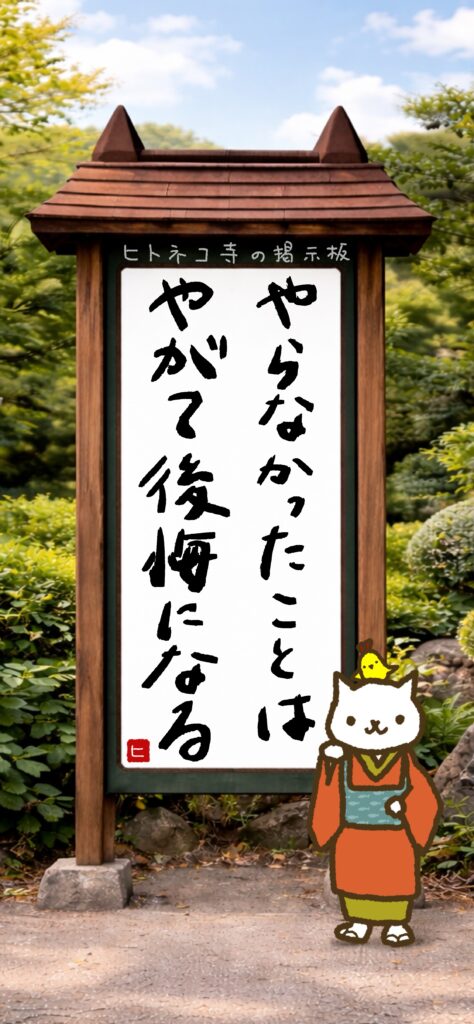 ヒトネコ寺の掲示板
やらなかったことは
やがて後悔になる
ヒ